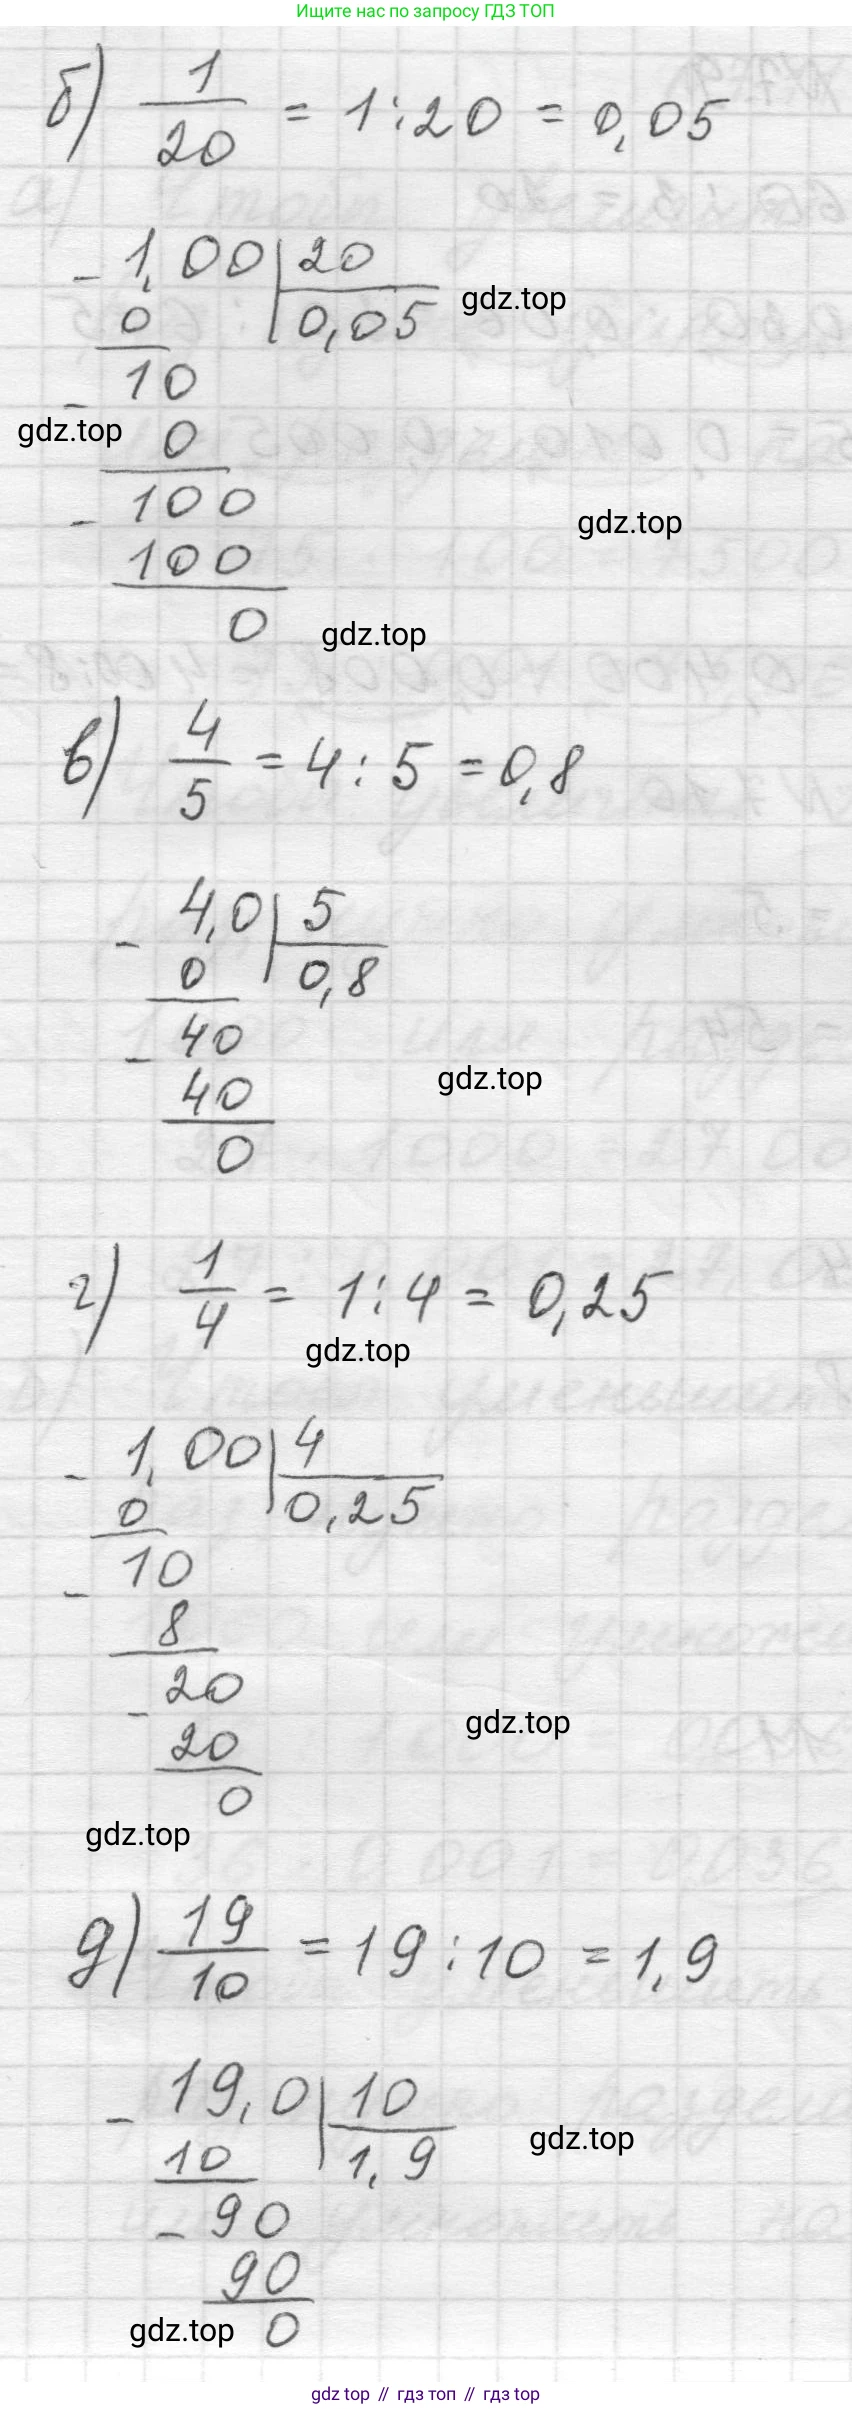 Ищите нас по запросу ГДЗ ТОП
б) 1/20 = 1:20 = 0,05
- 1,00 | 20
0 | 0,05
gdz.top
- 10
gdz.top
0
- 100
gdz.top
100
0
gdz.top
в) 4/5 = 4:5 = 0,8
- 4,0 | 5
0 | 0,8
- 40
gdz.top
40
0
г) 1/4 = 1:4 = 0,25
gdz.top
- 1,00 | 4
0 | 0,25
- 10
8
- 20
gdz.top
20
0
gdz.top
д) 19/10 = 19:10 = 1,9
- 19,0 | 10
10 | 1,9
gdz.top
- 90
90
gdz.top
0
gdz top // гдз топ // гдз top